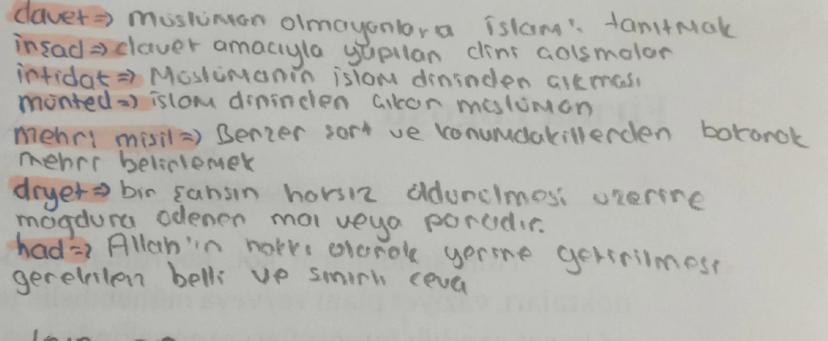 davet => müslüman olmayanlara islam'ı tanıtmak
inşad => davet amacıyla yapılan dini çalışmalar
irtidat => Müslümanın islam dininden çıkması
mürted => islam dininden çıkan müslüman
mehri misil => Benzer şart ve konumdakillerden bakarak
mehri belirlemek
diyet => bir şahsın haksız öldürülmesi üzerine
mağdura ödenen mal veya paradır.
had => Allah'ın hakkı olarak yerine getirilmesi
gerekilen belli ve sınırlı ceva